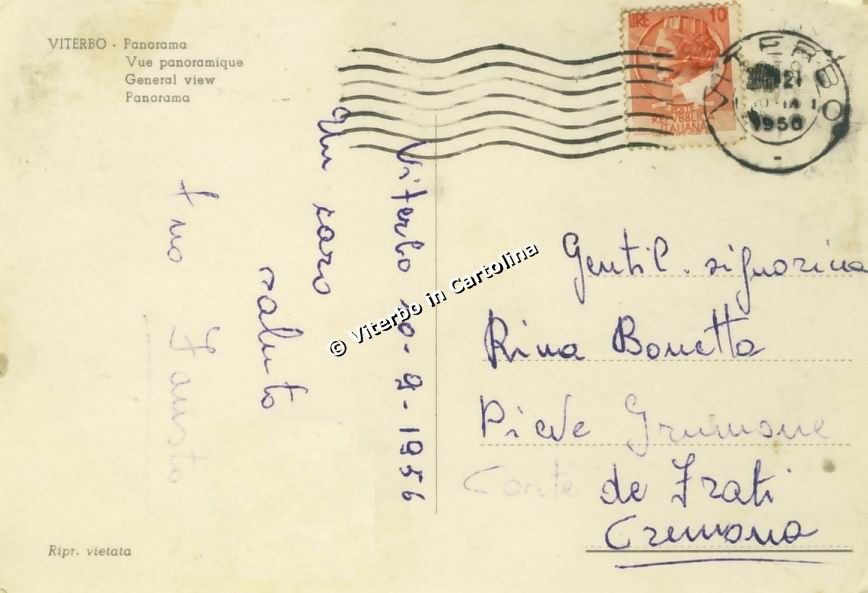 VITERBO - Panorama
Vue panoramique
General view
Panorama
LIRE 10
POSTE
REPVBBLICA
ITALIANA
VITERBO
21
1956
Viterbo 10-9-1956
Un caro
saluto
tuo Fausto
© Viterbo in Cartolina
Gentil. signorina
Rina Bonetta
Pieve Grumone
Corte de Frati
Cremona
Ripr. vietata